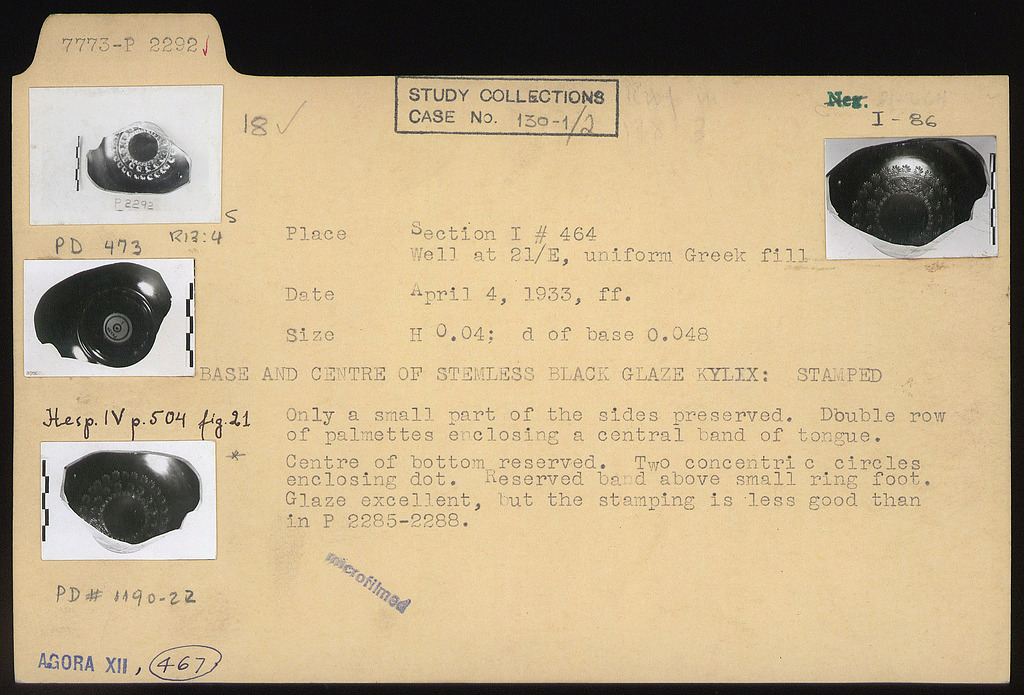 7773-P 2292
STUDY COLLECTIONS
CASE No. 130-1/2
18 ✓
Neg.
I - 86
P 2292
PD 473
R13:4
S
Place Section I # 464
Well at 21/E, uniform Greek fill
Date April 4, 1933, ff.
Size H 0.04; d of base 0.048
BASE AND CENTRE OF STEMLESS BLACK GLAZE KYLIX: STAMPED
Hesp. IV p. 504 fig. 21
*
Only a small part of the sides preserved. Double row
of palmettes enclosing a central band of tongue.
Centre of bottom reserved. Two concentric circles
enclosing dot. Reserved band above small ring foot.
Glaze excellent, but the stamping is less good than
in P 2285-2288.
microfilmed
PD# 1190-22
AGORA XII, 467